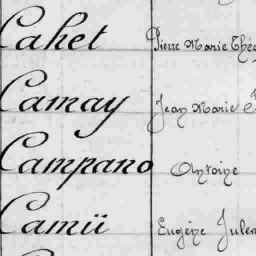 Cahet Pierre Marie
Camay Jean Marie
Campano Antoine
Camü Eugène